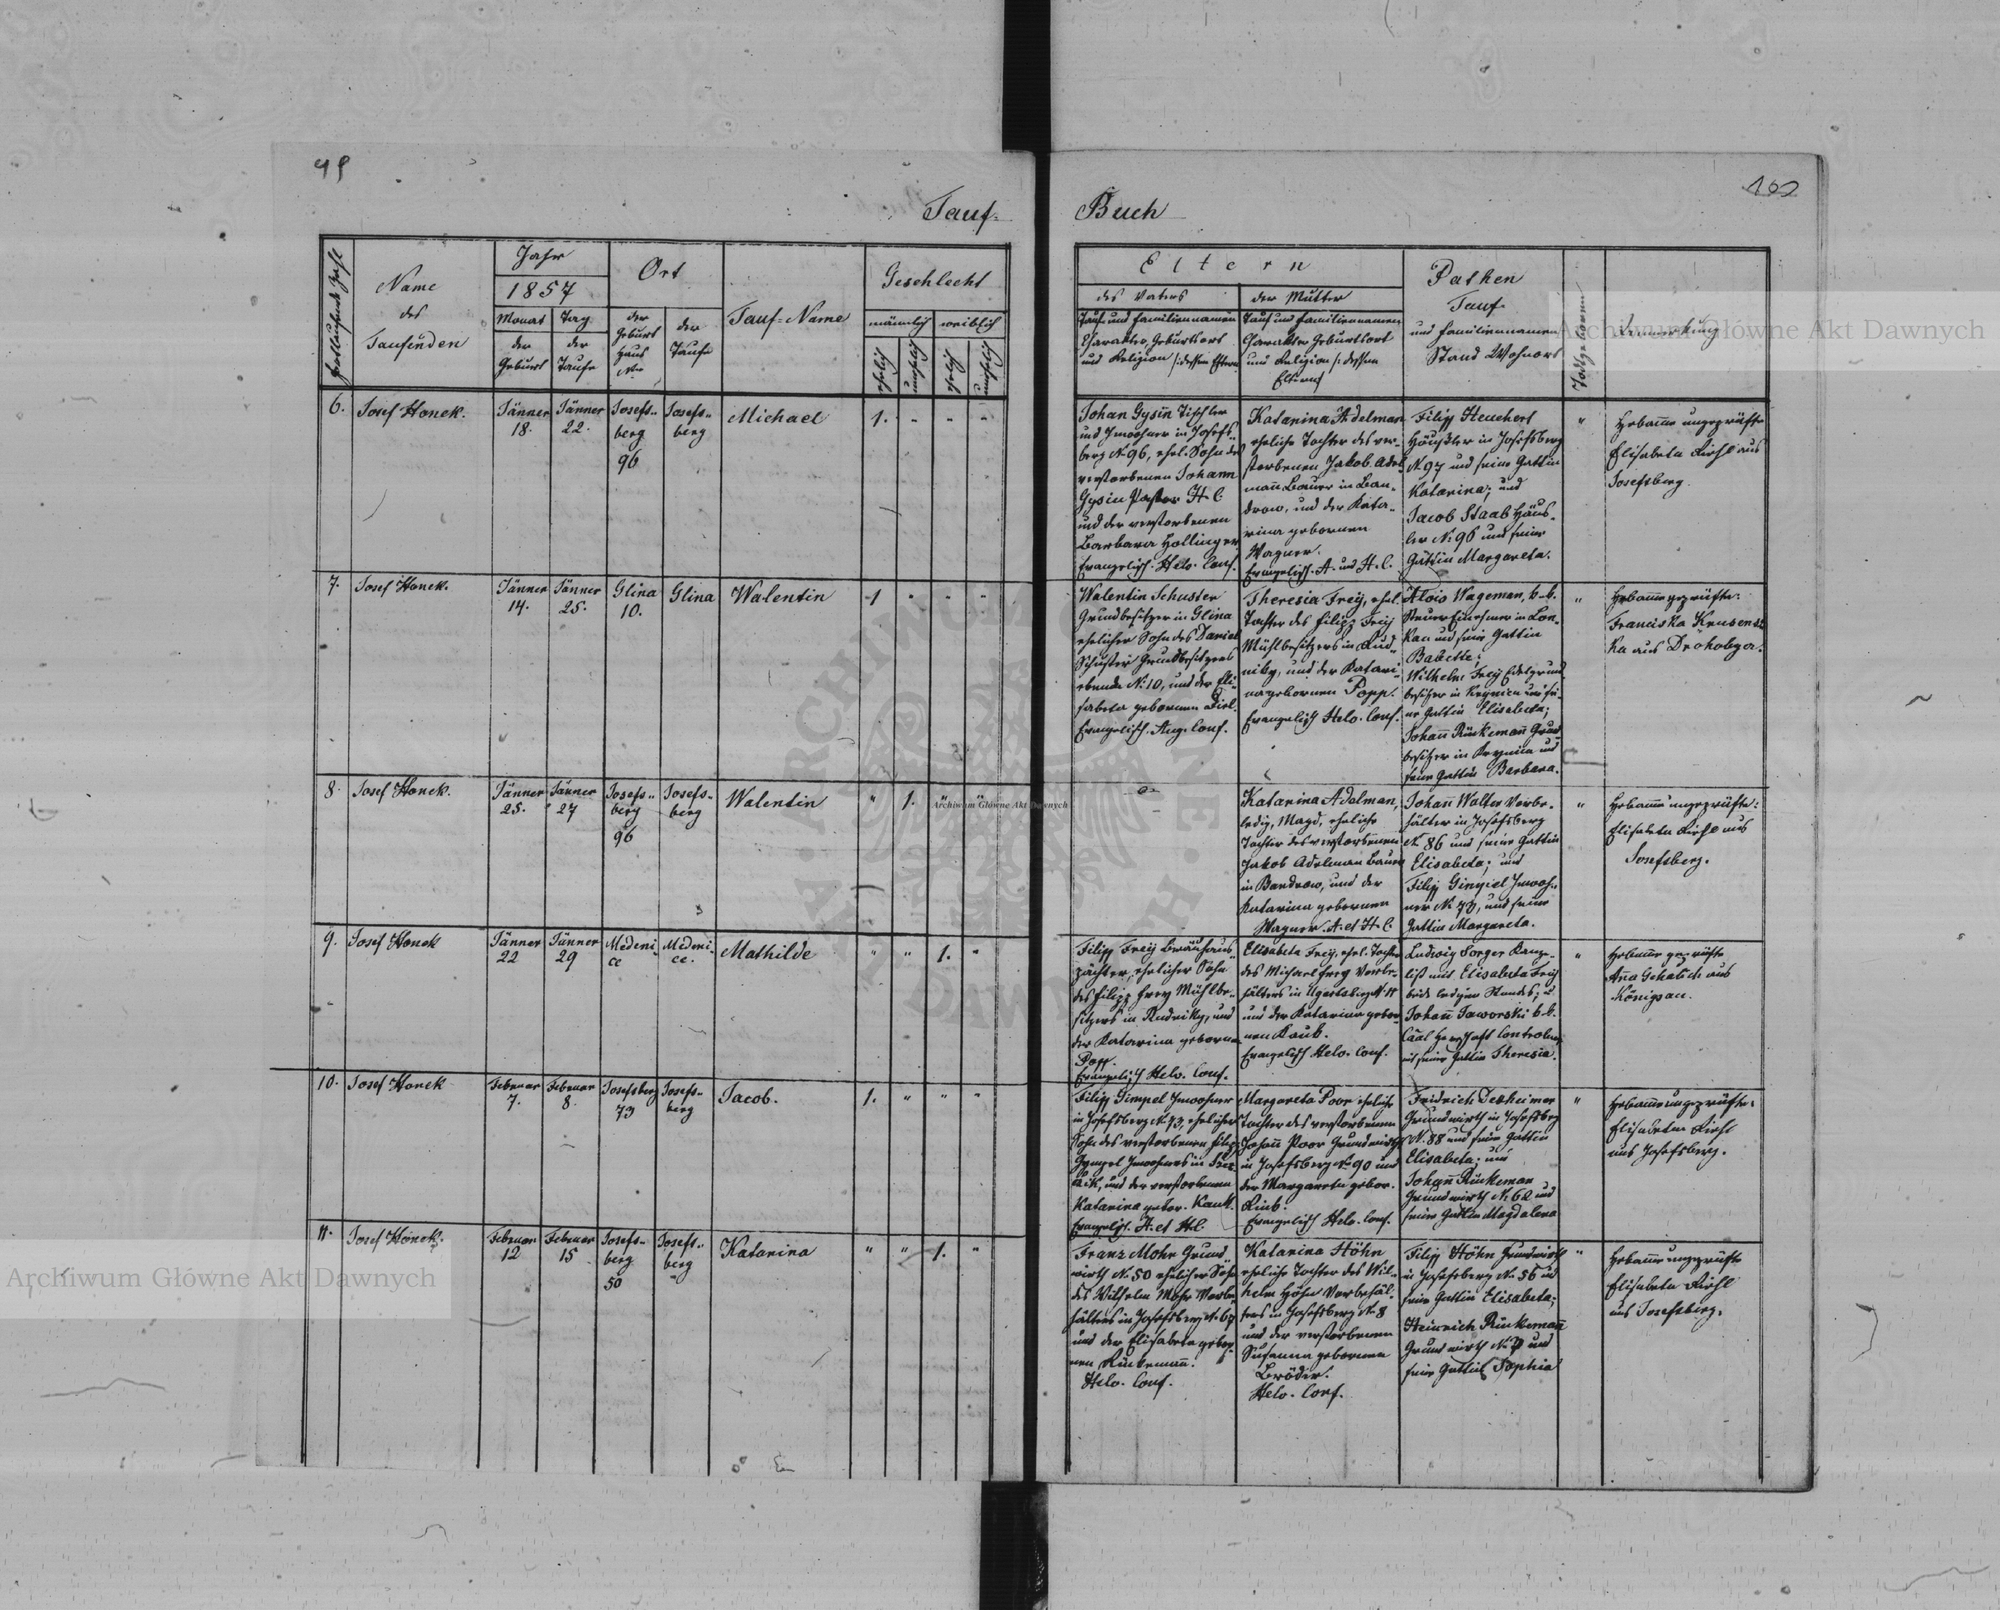 Tauf-
Buch
Fortlaufende Zahl
Name
des
Taufenden
Jahr
1857
Monat
der
Geburt
Tag
der
Taufe
Ort
der
Geburt
Haus
Nro
der
Taufe
Tauf-Name
Geschlecht
männlich
weiblich
ehelich
unehelich
ehelich
unehelich
Eltern
des Vaters
Tauf und Familiennamen
Charakter, Geburtsort
und Religion /: dessen Eltern
der Mutter
Tauf und Familiennamen
Charakter Geburtsort
und Religion /: dessen
Eltern
Pathen
Tauf
und Familiennamen
Stand Wohnort
Todtgeboren
Anmerkung
6.
Josef Honek.
Jänner
18.
Jänner
22.
Josefs-
berg
96
Josefs-
berg
Michael
1. " " "
Johan Gysin Tischler
und Inwohner in Josefs-
berg N. 96, ehel. Sohn des
verstorbenen Johann
Gysin Pastor H. C.
und der verstorbenen
Barbara Hollinger
Evangelisch. Helv. Conf.
Katarina Adelman
eheliche Tochter des ver-
storbenen Jakob Adel-
mann Bauer in Ban-
drow, und der Kata-
rina gebornen
Wagner.
Evangelisch. A. und H. C.
Filipp Heuchert
Häusler in Josefsberg
N. 97 und seine Gattin
Katarina; und
Jacob Staab Häus-
ler N. 96 und seine
Gattin Margareta.
"
Hebamme ungeprüfte
Elisabeta Diehl aus
Josefsberg.
7.
Josef Honek.
Jänner
14.
Jänner
25.
Glina
10.
Glina
Walentin
1 " " "
Walentin Schuster
Grundbesitzer in Glina
ehelicher Sohn des Daniel
Schuster Grundbesitzers
ebenda N. 10, und der Eli-
sabeta gebornen Diel.
Evangelisch. Aug. Conf.
Theresia Frey, ehel.
Tochter des Filipp Frey
Mühlbesitzers in Rud-
niky, und der Katari-
na gebornen Popp.
Evangelisch Helv. Conf.
Alois Wageman, k. k.
Steuer Einnehmer in Lon-
kau und seine Gattin
Babette;
Wilhelm Frey
besitzer in Krynica und sei-
ne Gattin Elisabeta;
Johann Rinkemann Grund-
besitzer in Krynica und
seine Gattin Barbara.
"
Hebamme geprüfte:
Franciska
ka aus Drohobycz.
8.
Josef Honek.
Jänner
25.
Jänner
27
Josefs-
berg
96
Josefs-
berg
Walentin
" 1. " "
Katarina Adelman,
ledig, Magd, eheliche
Tochter des verstorbenen
Jakob Adelman Bauer
in Bandrow, und der
Katarina gebornen
Wagner. A. et H. C.
Johann Walter Vorbe-
hälter in Josefsberg
N. 86 und seine Gattin
Elisabeta; und
Filipp Inwoh-
ner N. 73, und seine
Gattin Margareta.
"
Hebamme ungeprüfte:
Elisabeta Diehl aus
Josefsberg.
9.
Josef Honek
Jänner
22
Jänner
29
Medeni-
ce
Medeni-
ce.
Mathilde
" " 1. "
Filipp Frey Bräuhaus-
pächter, ehelicher Sohn
des Filipp Frey Mühlbe-
sitzers in Rudniky, und
der Katarina geborne
Popp.
Evangelisch Helv. Conf.
Elisabeta Frey, ehel. Tochter
des Michael Frey Vorbe-
hälters in Ugartsberg N. 11
und der Katarina gebor-
nen Kaub.
Evangelisch Helv. Conf.
Ludwig Sorger Kanze-
list und Elisabeta Frey
beide ledigen Standes; u
Johann Jaworski k. k.
Controlor
und seine Gattin Theresia.
"
Hebamme geprüfte
Anna aus
Königsau.
10.
Josef Honek
Februar
7.
Februar
8.
Josefsberg
73
Josefs-
berg
Jacob.
1. " " "
Filipp Gimpel Inwohner
in Josefsberg N. 73, ehelicher
Sohn des verstorbenen Filipp
Gympel Inwohners in
und der verstorbenen
Katarina gebor.
Evangelisch. A. et H. C.
Margareta Poor eheliche
Tochter des verstorbenen
Johann Poor Grundwirth
in Josefsberg N. 90 und
der Margareta gebor.
Evangelisch Helv. Conf.
Fridrich Desheimer
Grundwirth in Josefsberg
N. 88 und seine Gattin
Elisabeta; und
Johann Rinkeman
Grundwirth N. 62 und
seine Gattin Magdalena
"
Hebamme ungeprüfte:
Elisabeta Diehl
aus Josefsberg.
11.
Josef Honek.
Februar
12
Februar
15
Josefs-
berg
50
Josefs-
berg
Katarina
" " 1. "
Franz Mohr Grund-
wirth N. 50 ehelicher Sohn
des Wilhelm Mohr Vorbe-
hälters in Josefsberg N. 67
und der Elisabeta gebor-
nen Rinkemann.
Helv. Conf.
Katarina Höhn
eheliche Tochter des Wil-
helm Höhn Vorbehäl-
ters in Josefsberg N. 8
und der verstorbenen
Susanna gebornen
Bröder.
Helv. Conf.
Filipp Höhn Grundwirth
in Josefsberg N. 56 und
seine Gattin Elisabeta;
Heinrich Rinkemann
Grundwirth N. 7 und
seine Gattin Sophia
"
Hebamme ungeprüfte
Elisabeta Diehl
aus Josefsberg.
Archiwum Główne Akt Dawnych
Archiwum Główne Akt Dawnych
Archiwum Główne Akt Dawnych